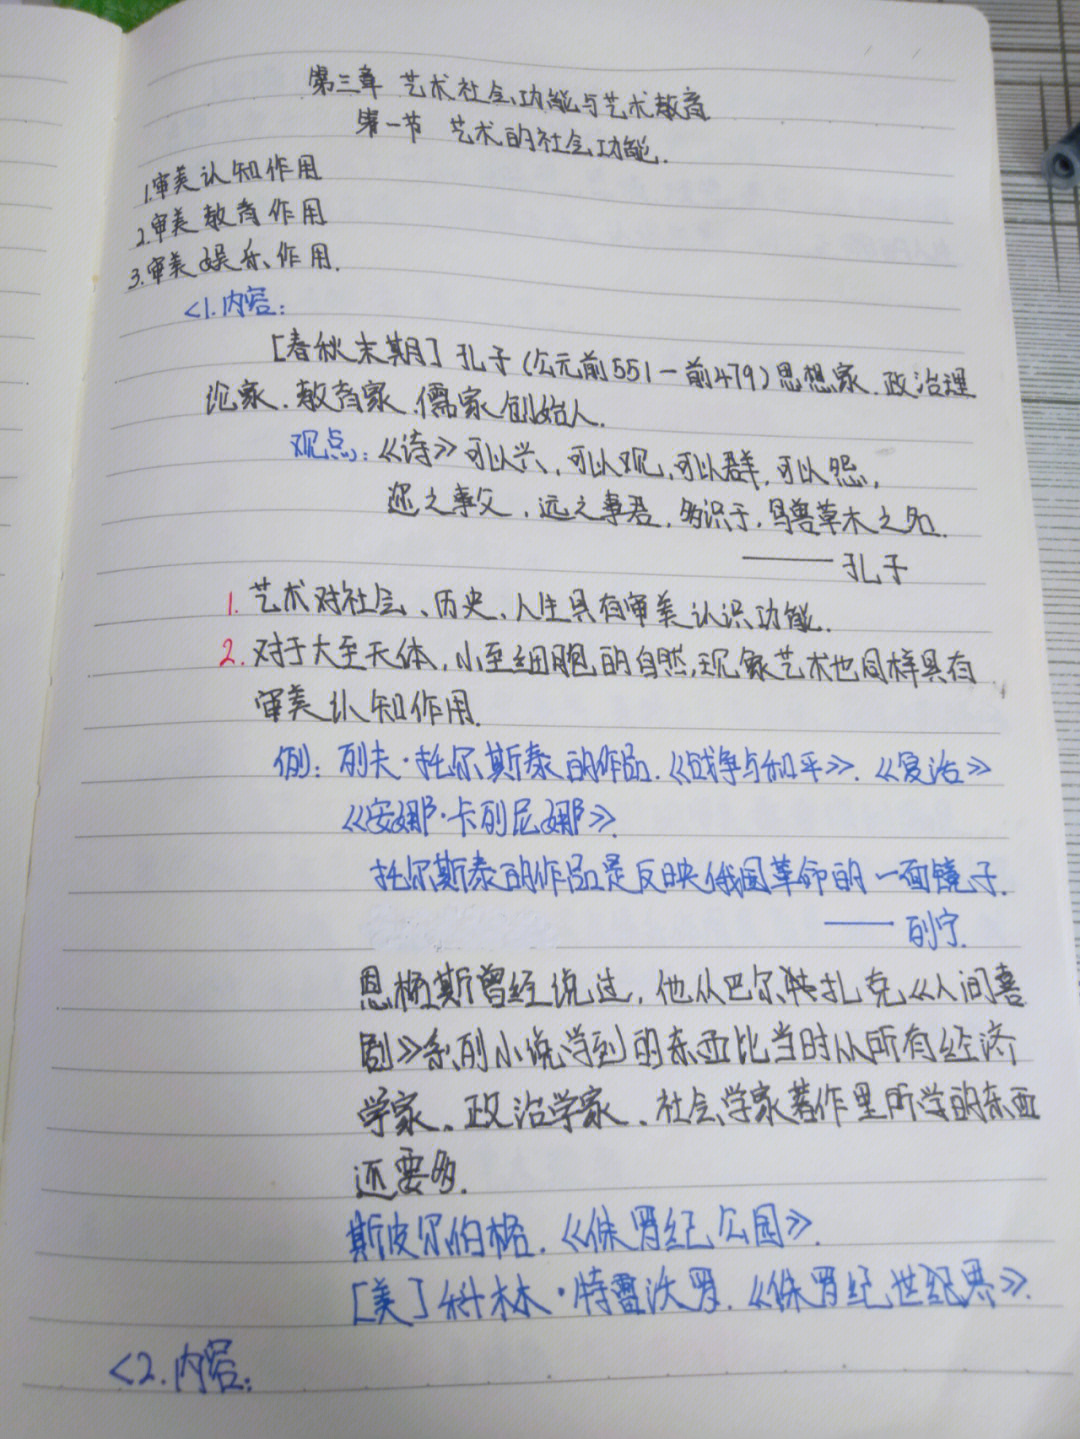 第三章 艺术社会功能与艺术教育
第一节 艺术的社会功能.
1.审美认知作用
2.审美教育作用
3.审美娱乐作用.
<1.内容:
[春秋末期] 孔子(公元前551-前479)思想家.政治理
论家.教育家.儒家创始人.
观点:《诗》可以兴,可以观,可以群,可以怨,
迩之事父,远之事君,多识于,鸟兽草木之名.
——孔子
1. 艺术对社会、历史、人生具有审美认识功能.
2. 对于大至天体,小至细胞的自然,现象艺术也同样具有
审美认知作用.
例: 列夫·托尔斯泰的作品.《战争与和平》.《复活》
《安娜·卡列尼娜》.
托尔斯泰的作品是反映俄国革命的一面镜子.
——列宁.
恩格斯曾经说过,他从巴尔扎克《人间喜
剧》系列小说学到的东西比当时从所有经济
学家、政治学家、社会学家著作里所学的东西
还要多.
斯皮尔伯格.《侏罗纪公园》.
[美] 科林·特雷沃罗.《侏罗纪世纪界》.
<2.内容: